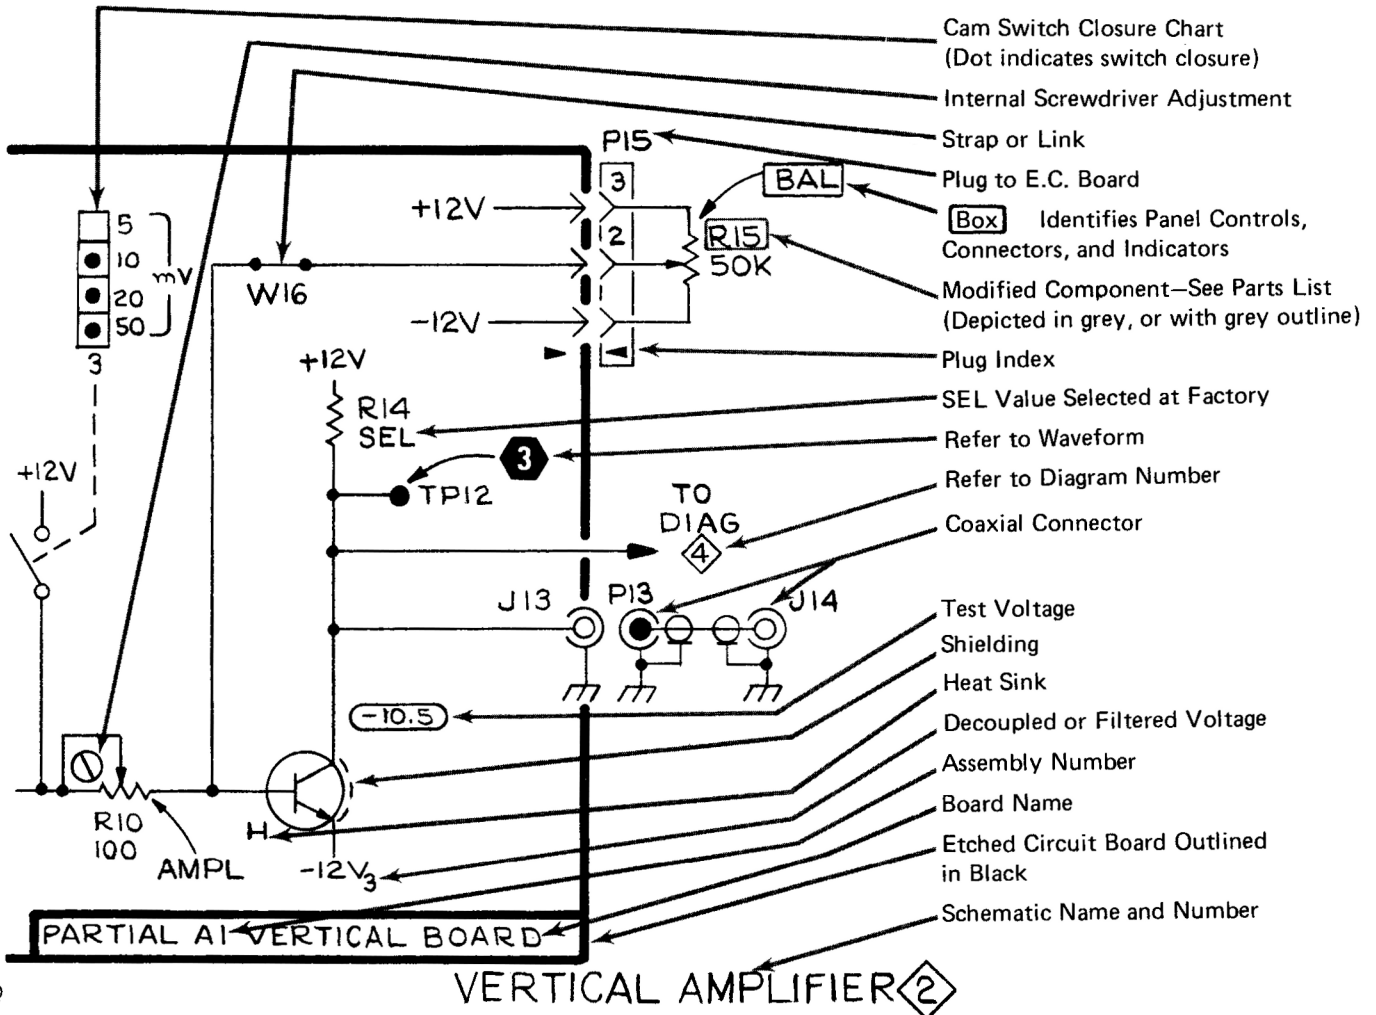 Cam Switch Closure Chart
(Dot indicates switch closure)
Internal Screwdriver Adjustment
Strap or Link
Plug to E.C. Board
Box Identifies Panel Controls,
Connectors, and Indicators
Modified Component—See Parts List
(Depicted in grey, or with grey outline)
Plug Index
SEL Value Selected at Factory
Refer to Waveform
Refer to Diagram Number
Coaxial Connector
Test Voltage
Shielding
Heat Sink
Decoupled or Filtered Voltage
Assembly Number
Board Name
Etched Circuit Board Outlined
in Black
Schematic Name and Number
P15
3
2
BAL
R15
50K
+12V
-12V
W16
5
10
20
50
mV
3
+12V
R14
SEL
3
TP12
+12V
TO
DIAG
4
J13
P13
J14
-10.5
R10
100
AMPL
H
-12V3
PARTIAL A1 VERTICAL BOARD
VERTICAL AMPLIFIER 2